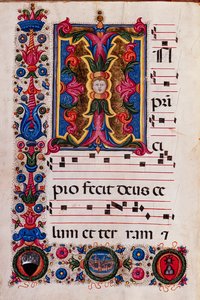 I N
prī
ci
pio fecit deus ce
lum et ter ram ⁊